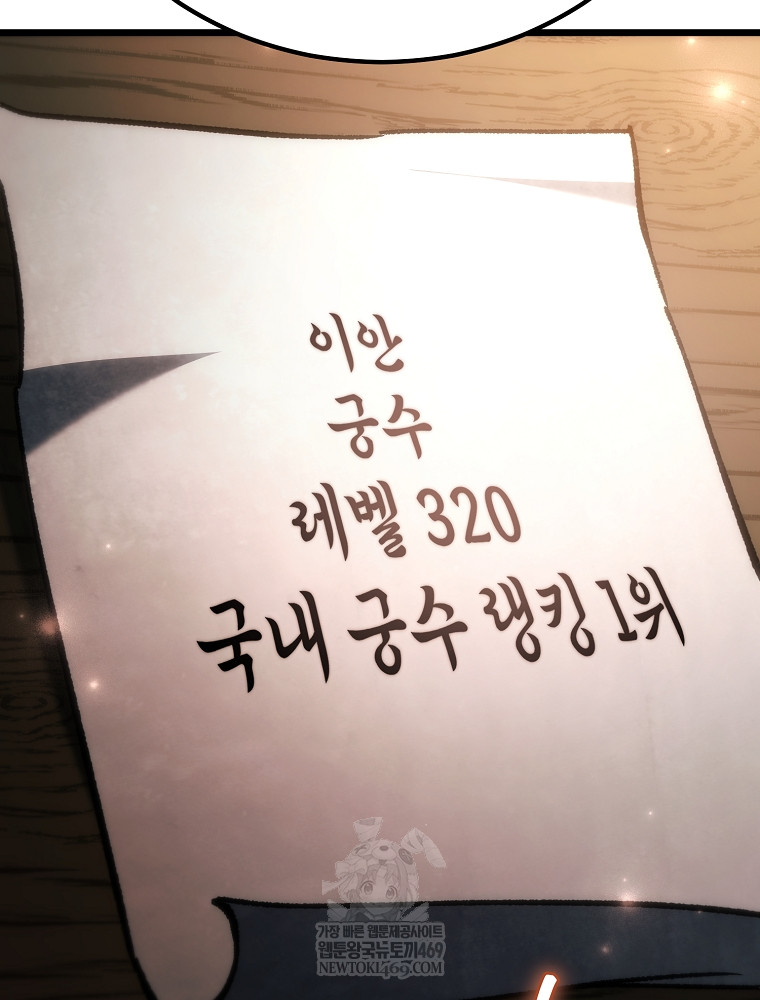 이안
궁수
레벨 320
국내 궁수 랭킹 1위
가장 빠른 웹툰제공사이트
웹툰왕국뉴토끼469
NEWTOKI469.COM